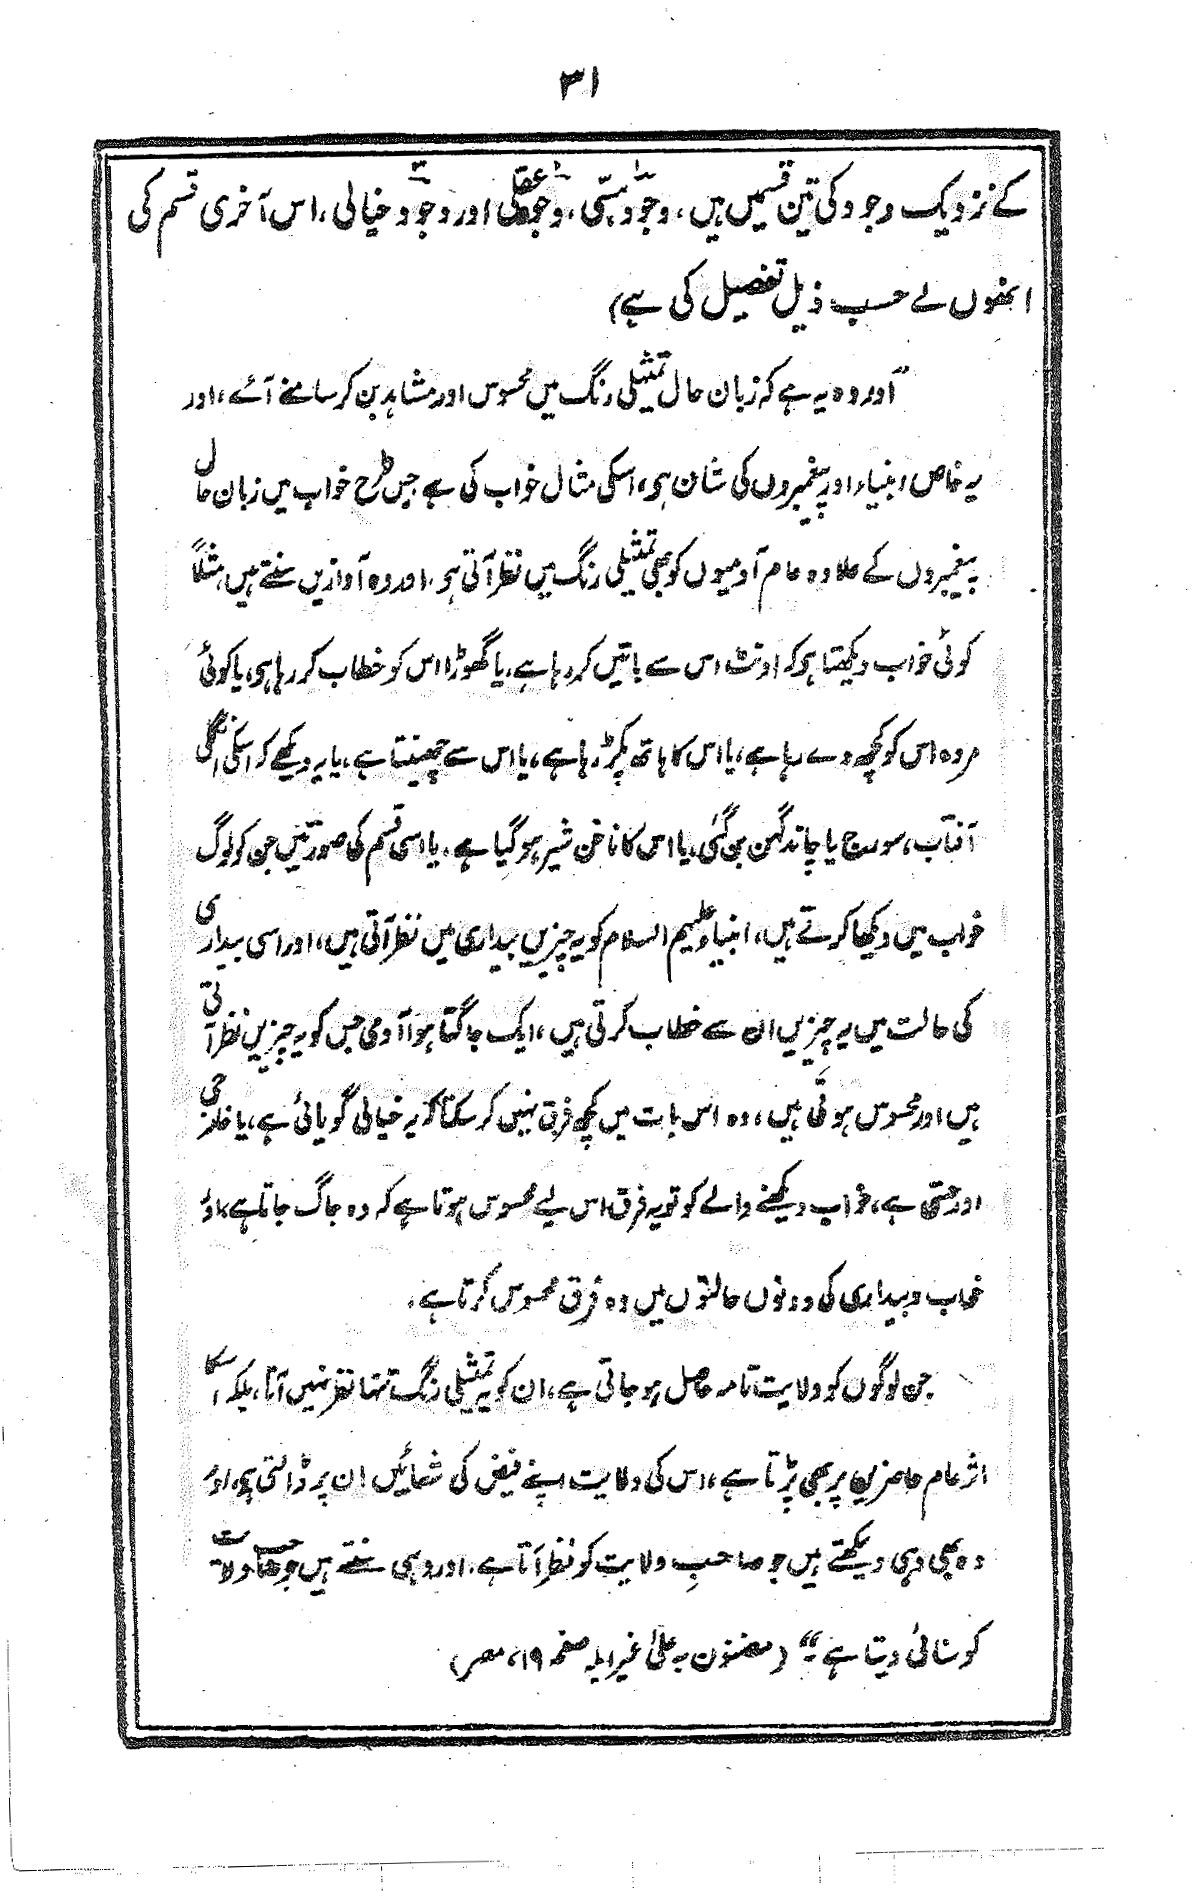 ۳۱
کے نزدیک وجود کی تین قسمیں ہیں، وجود حسّی، وجود عقلی اور وجود خیالی، اس آخری قسم کی
انھوں نے حسب ذیل تفصیل کی ہے)
"اور وہ یہ ہے کہ زبان حال تمثیلی رنگ میں محسوس اور مشاہد بن کر سامنے آئے، اور
یہ خاص انبیاء اور پیغمبروں کی شان ہی، اسکی مثال خواب کی ہے جس طرح خواب میں زبان حال
پیغمبروں کے علاوہ عام آدمیوں کو بھی تمثیلی رنگ میں نظر آتی ہی، اور وہ آوازیں سنتے ہیں، مثلاً
کوئی خواب دیکھتا ہی کہ اونٹ اس سے باتیں کر رہا ہے، یا گھوڑا اس کو خطاب کر رہا ہی، یا کوئی
مردہ اس کو کچھ دے رہا ہے، یا اس کا ہاتھ پکڑ رہا ہے، یا اس سے چھینتا ہے، یا یہ دیکھے کہ اسکی انگلی
آفتاب، سورج یا چاند گہن بن گئی، یا اس کا ناخن شیر ہو گیا ہے، یا اسی قسم کی صورتیں جن کو لوگ
خواب میں دیکھا کرتے ہیں، انبیاء علیہم السلام کو یہ چیزیں بیداری میں نظر آتی ہیں، اور اسی بیداری
کی حالت میں یہ چیزیں ان سے خطاب کرتی ہیں، ایک جاگتا ہوا آدمی جس کو یہ چیزیں نظر آتی
ہیں اور محسوس ہوتی ہیں، وہ اس بات میں کچھ فرق نہیں کر سکتا کہ یہ خیالی گویائی ہے، یا خارجی
اور حسّی ہے، خواب دیکھنے والے کو تو یہ فرق اس لیے محسوس ہوتا ہے کہ وہ جاگ جاتا ہے، اور
خواب و بیداری کی دونوں حالتوں میں وہ فرق محسوس کرتا ہے،
جن لوگوں کو ولایت تامہ حاصل ہو جاتی ہے، ان کو یہ تمثیلی رنگ تنہا نظر نہیں آتا، بلکہ اسکا
اثر عام حاضرین پر بھی پڑتا ہے، اس کی ولایت اپنے فیض کی شعائیں ان پر ڈالتی ہی، اور
وہ بھی وہی دیکھتے ہیں جو صاحبِ ولایت کو نظر آتا ہے، اور وہی سنتے ہیں جو صاحب ولایت
کو سنائی دیتا ہے" (مضنون بہ علیٰ غیر اہلہ صفحہ ۱۹، مصر)